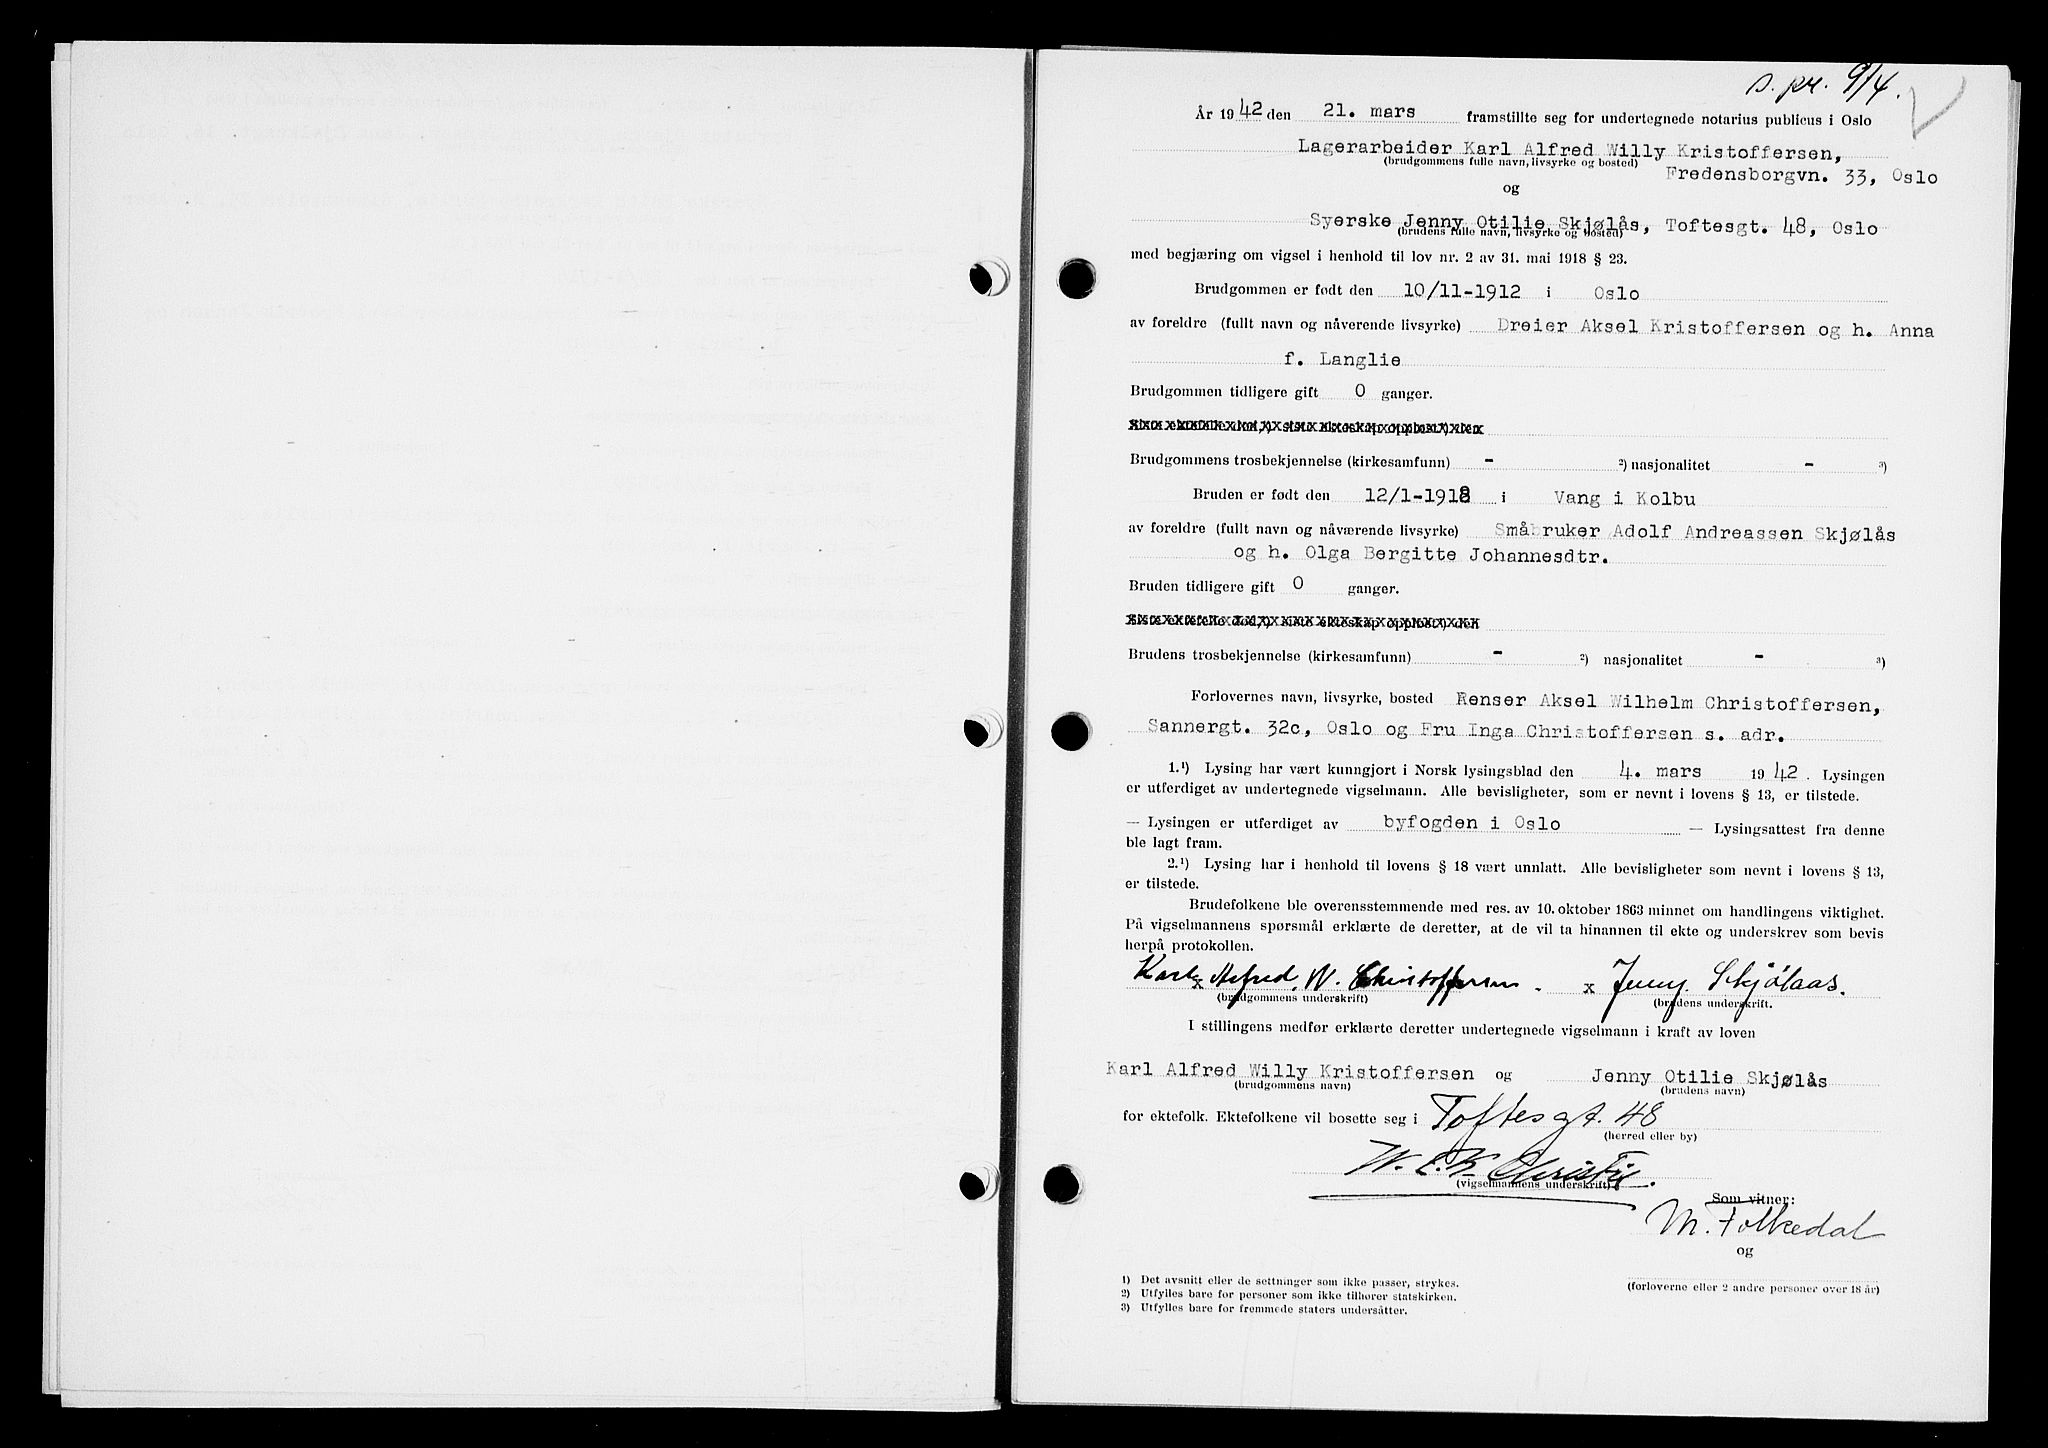 s. pr. 9/4.
År 1942 den 21. mars framstillte seg for undertegnede notarius publicus i Oslo
Lagerarbeider Karl Alfred Willy Kristoffersen,
(brudgommens fulle navn, livsyrke og bosted)
Fredensborgvn. 33, Oslo
og
Syerske Jenny Otilie Skjølås, Toftesgt. 48, Oslo
(brudens fulle navn, livsyrke og bosted)
med begjæring om vigsel i henhold til lov nr. 2 av 31. mai 1918 § 23.
Brudgommen er født den 10/11-1912 i Oslo
av foreldre (fullt navn og nåverende livsyrke) Dreier Aksel Kristoffersen og h. Anna
f. Langlie
Brudgommen tidligere gift 0 ganger.
Brudgommens trosbekjennelse (kirkesamfunn) - ²) nasjonalitet - ³)
Bruden er født den 12/1-1918 i Vang i Kolbu
av foreldre (fullt navn og nåværende livsyrke) Småbruker Adolf Andreassen Skjølås
og h. Olga Bergitte Johannesdtr.
Bruden tidligere gift 0 ganger.
Siste ektefelle død,¹) siste ekteskap oppløst¹) den
Brudens trosbekjennelse (kirkesamfunn) - ²) nasjonalitet - ³)
Forlovernes navn, livsyrke, bosted Renser Aksel Wilhelm Christoffersen,
Sannergt. 32c, Oslo og Fru Inga Christoffersen s. adr.
1.¹) Lysing har vært kunngjort i Norsk lysingsblad den 4. mars 1942. Lysingen
er utferdiget av undertegnede vigselmann. Alle bevisligheter, som er nevnt i lovens § 13, er tilstede.
— Lysingen er utferdiget av byfogden i Oslo — Lysingsattest fra denne
ble lagt fram.
2.¹) Lysing har i henhold til lovens § 18 vært unnlatt. Alle bevisligheter som nevnt i lovens § 13,
er tilstede.
Brudefolkene ble overensstemmende med res. av 10. oktober 1863 minnet om handlingens viktighet.
På vigselmannens spørsmål erklærte de deretter, at de vil ta hinannen til ekte og underskrev som bevis
herpå protokollen.
Karl x Alfred. W. Christoffersen. x Jenny. Skjølaas.
(brudgommens underskrift) (brudens underskrift.
I stillingens medfør erklærte deretter undertegnede vigselmann i kraft av loven
Karl Alfred Willy Kristoffersen og Jenny Otilie Skjølås
(brudgommens navn) (brudens navn)
for ektefolk. Ektefolkene vil bosette seg i Toftesgt. 48
(herred eller by)
W. E. K. Christie.
(vigselmannens underskrift)
Som vitner:
M. Folkedal
og
(forloverne eller 2 andre personer over 18 år)
1) Det avsnitt eller de settninger som ikke passer, strykes.
2) Utfylles bare for personer som ikke tilhører statskirken.
3) Utfylles bare for fremmede staters undersåtter.